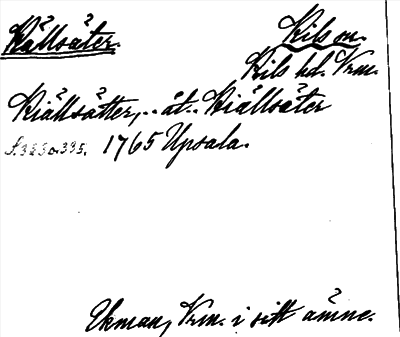 Källsåter.
Kils sn.
Kils hd. Vrm.
Kiällsätter,.. åt.. Kiällsäter
S. 323 o. 335. 1765 Upsala.
Ekman, Vrm. i sitt ämne.